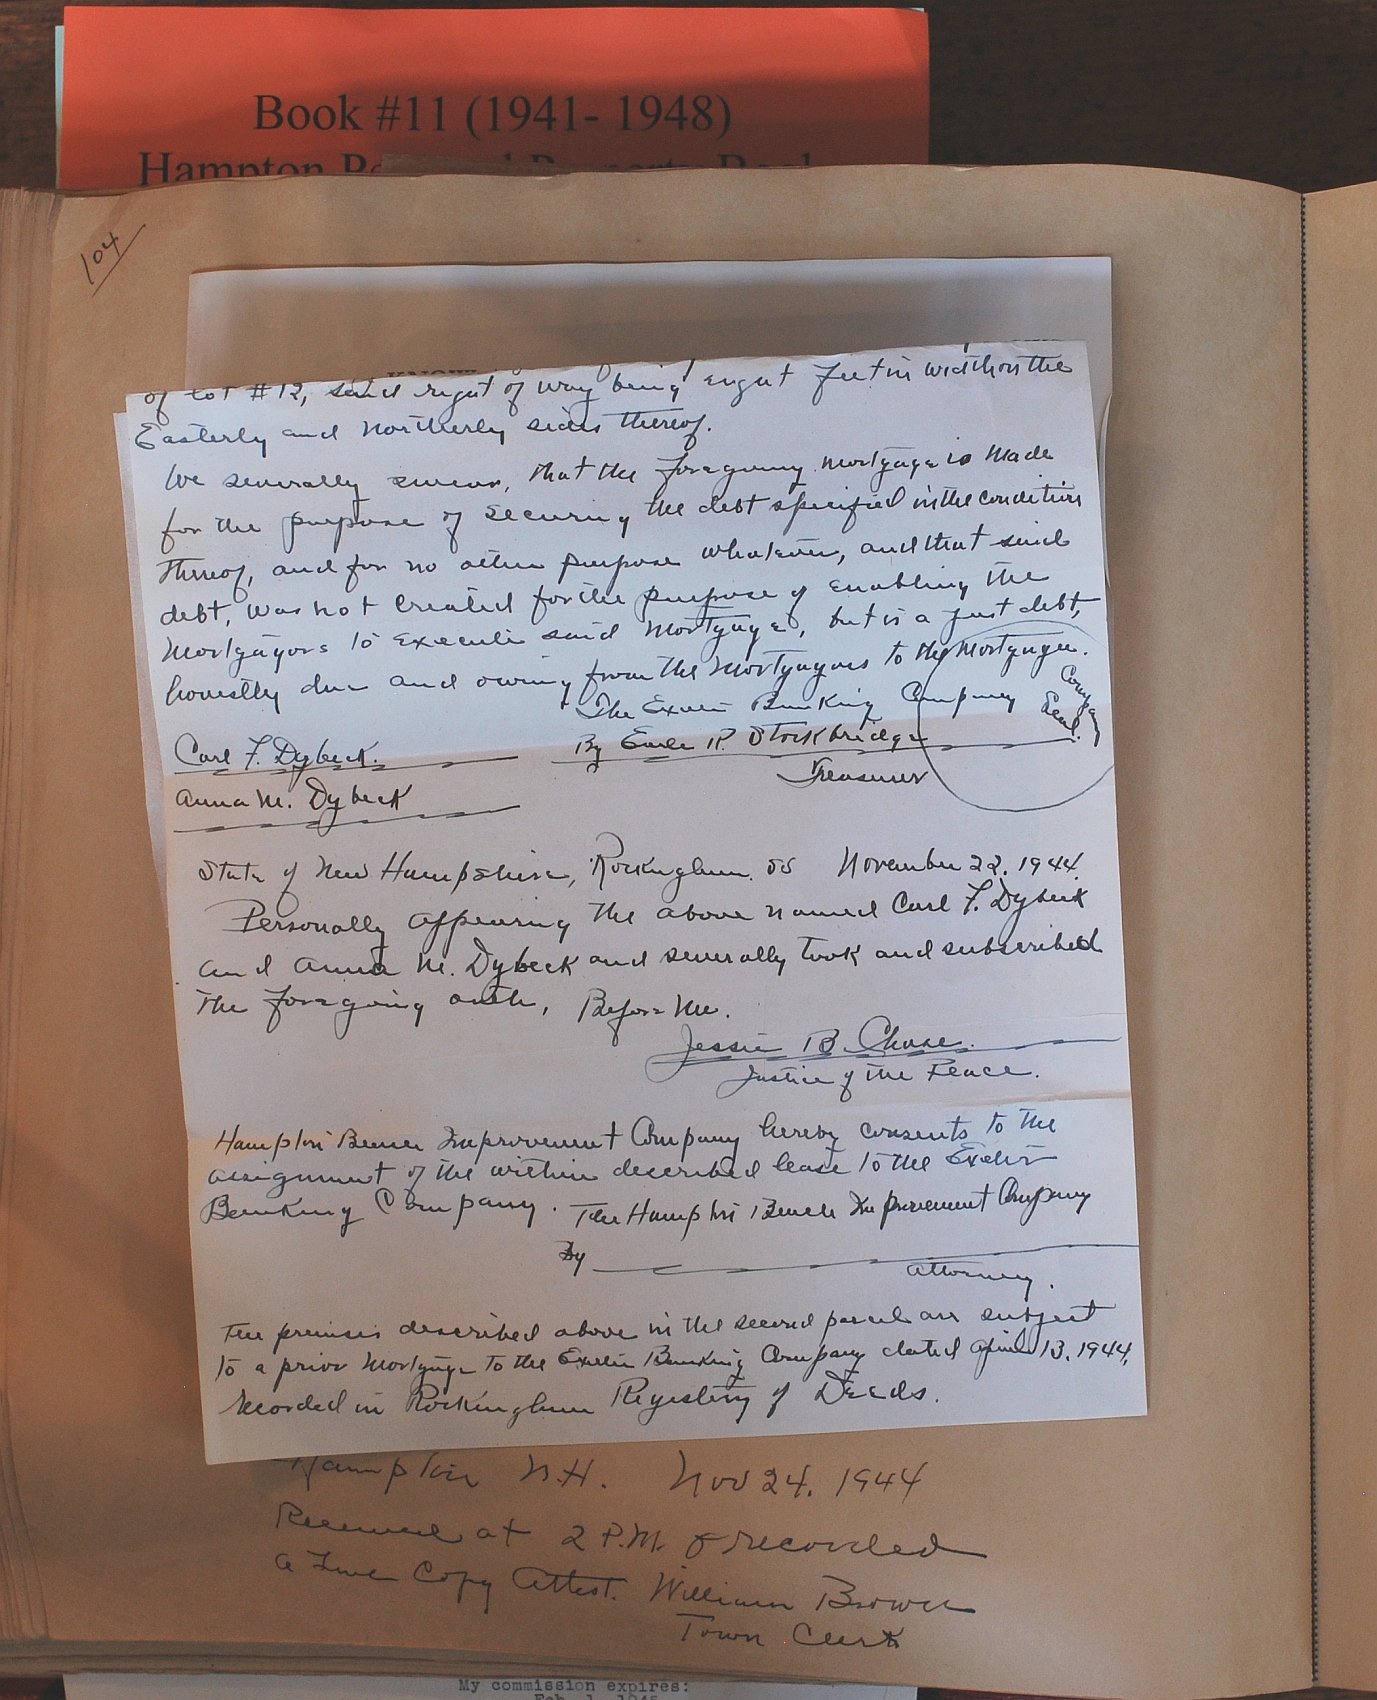 Book #11 (1941- 1948)
Hampton
104
KNOW
of lot #12, said right of way being eight feet in width on the
Easterly and Northerly sides thereof.
We severally swear, that the foregoing mortgage is made
for the purpose of securing the debt specified in the condition
thereof, and for no other purpose whatever, and that said
debt, was not created for the purpose of enabling the
Mortgagors to execute said Mortgage, but is a just debt,
honestly due and owing from the Mortgagors to the Mortgagee.
The Exeter Banking Company
Company
Seal.
Carl F. Dybeck.
By Earle R. Stockbridge
Treasurer
Anna M. Dybeck
State of New Hampshire, Rockingham. SS November 22, 1944.
Personally appearing the above named Carl F. Dybeck
and Anna M. Dybeck and severally took and subscribed
the foregoing oath, Before Me.
Jessie B. Chase.
Justice of the Peace.
Hampton Beach Improvement Company hereby consents to the
assignment of the within described lease to the Exeter
Banking Company. The Hampton Beach Improvement Company
By
Attorney.
The premises described above in the second parcel are subject
to a prior mortgage to the Exeter Banking Company dated April 13, 1944,
recorded in Rockingham Registry of Deeds.
Hampton N.H. Nov 24, 1944
Received at 2 P.M. & recorded
a True Copy Attest. William Brown
Town Clerk
My commission expires:
Feb. 1,